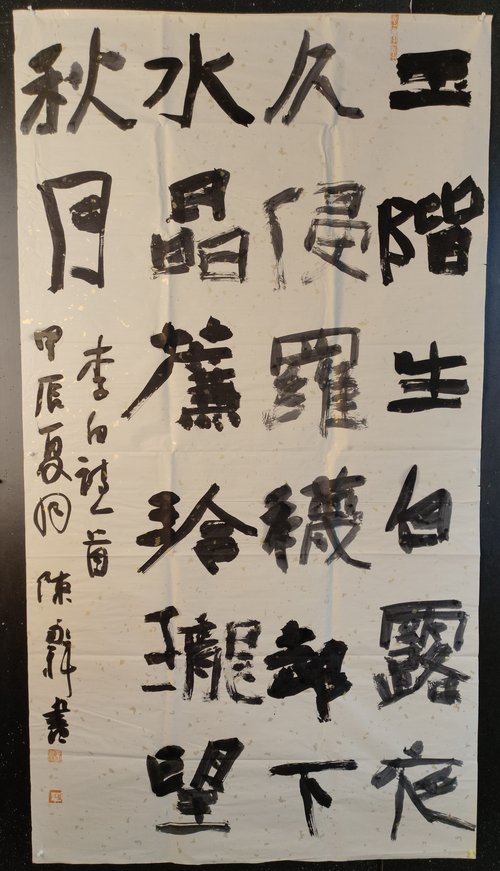 玉階生白露夜
久侵羅襪却下
水晶簾玲瓏望
秋月
李白詩一首
甲辰夏月 陳書